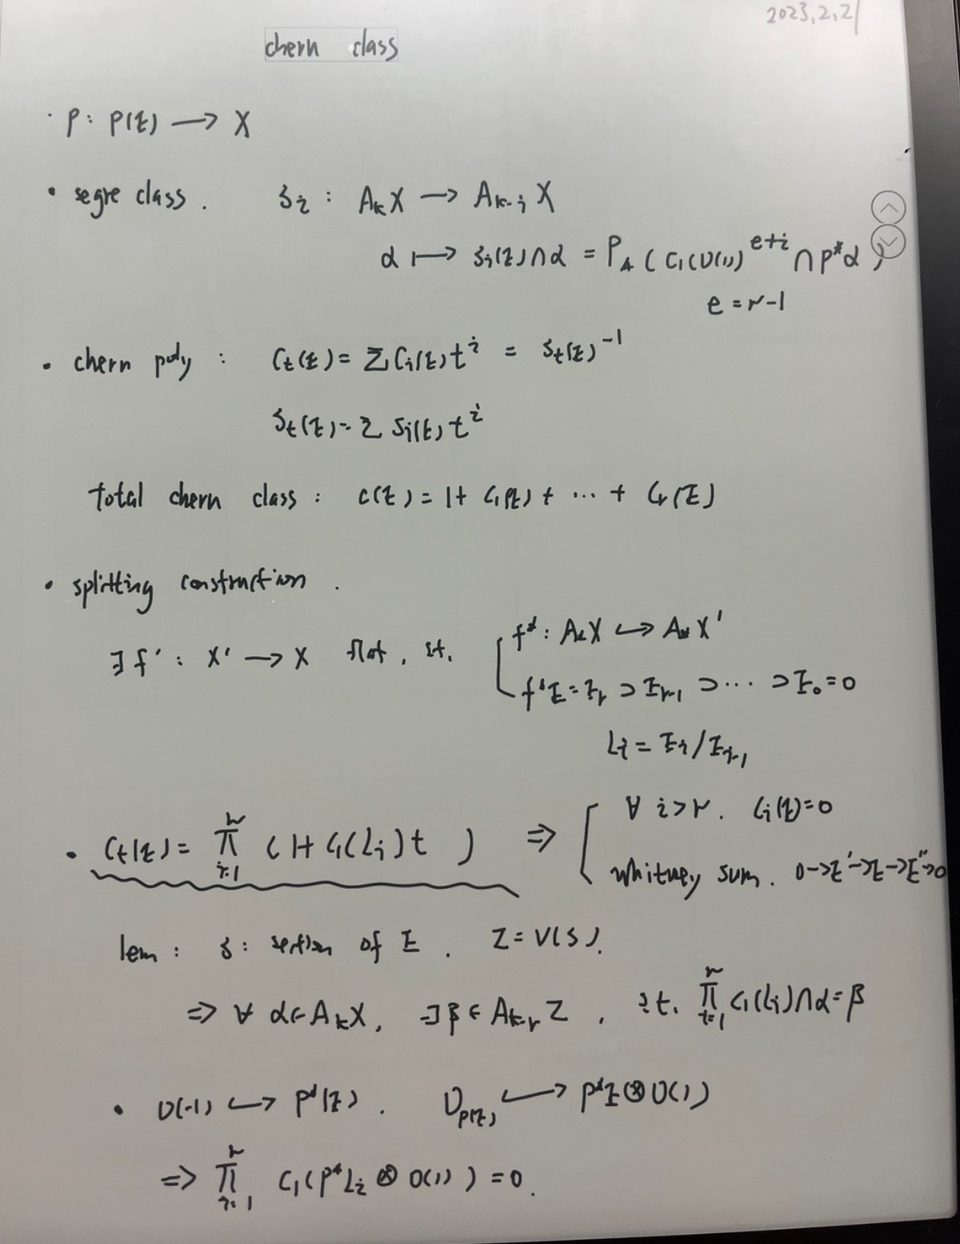 2023.2.21
chern class
· p: P(E) → X
• segre class. s_i : A_k X → A_{k-i} X
α ↦ s_i(E)∩α = P_*(c_1(O(1))^{e+i} ∩ p^*α)
e = r-1
• chern poly : C_t(E) = Σ C_i(E) t^i = S_t(E)^{-1}
S_t(E) = Σ S_i(E) t^i
total chern class : c(E) = 1 + c_1(E) + ⋯ + c_r(E)
• splitting construction.
∃ f' : X' → X flat, st. [ f^* : A_k X ↪ A_* X'
f^*E = E_r ⊃ E_{r-1} ⊃ ⋯ ⊃ E_0 = 0
L_i = E_i / E_{i-1}
• C_t(E) = ∏_{i=1}^r (1 + c_1(L_i)t) ⇒ [ ∀ i>r. c_i(E) = 0
whitney sum. 0→E'→E→E''→0
lem : s : section of E. Z = V(s).
⇒ ∀ α ∈ A_k X, ∃ β ∈ A_{k-r} Z, st. ∏_{i=1}^r c_1(L_i)∩α = β
• O(-1) ↪ P^*(E). O_{P(E)} ↪ P^*E ⊗ O(1)
⇒ ∏_{i=1}^r c_1(P^*L_i ⊗ O(1)) = 0.